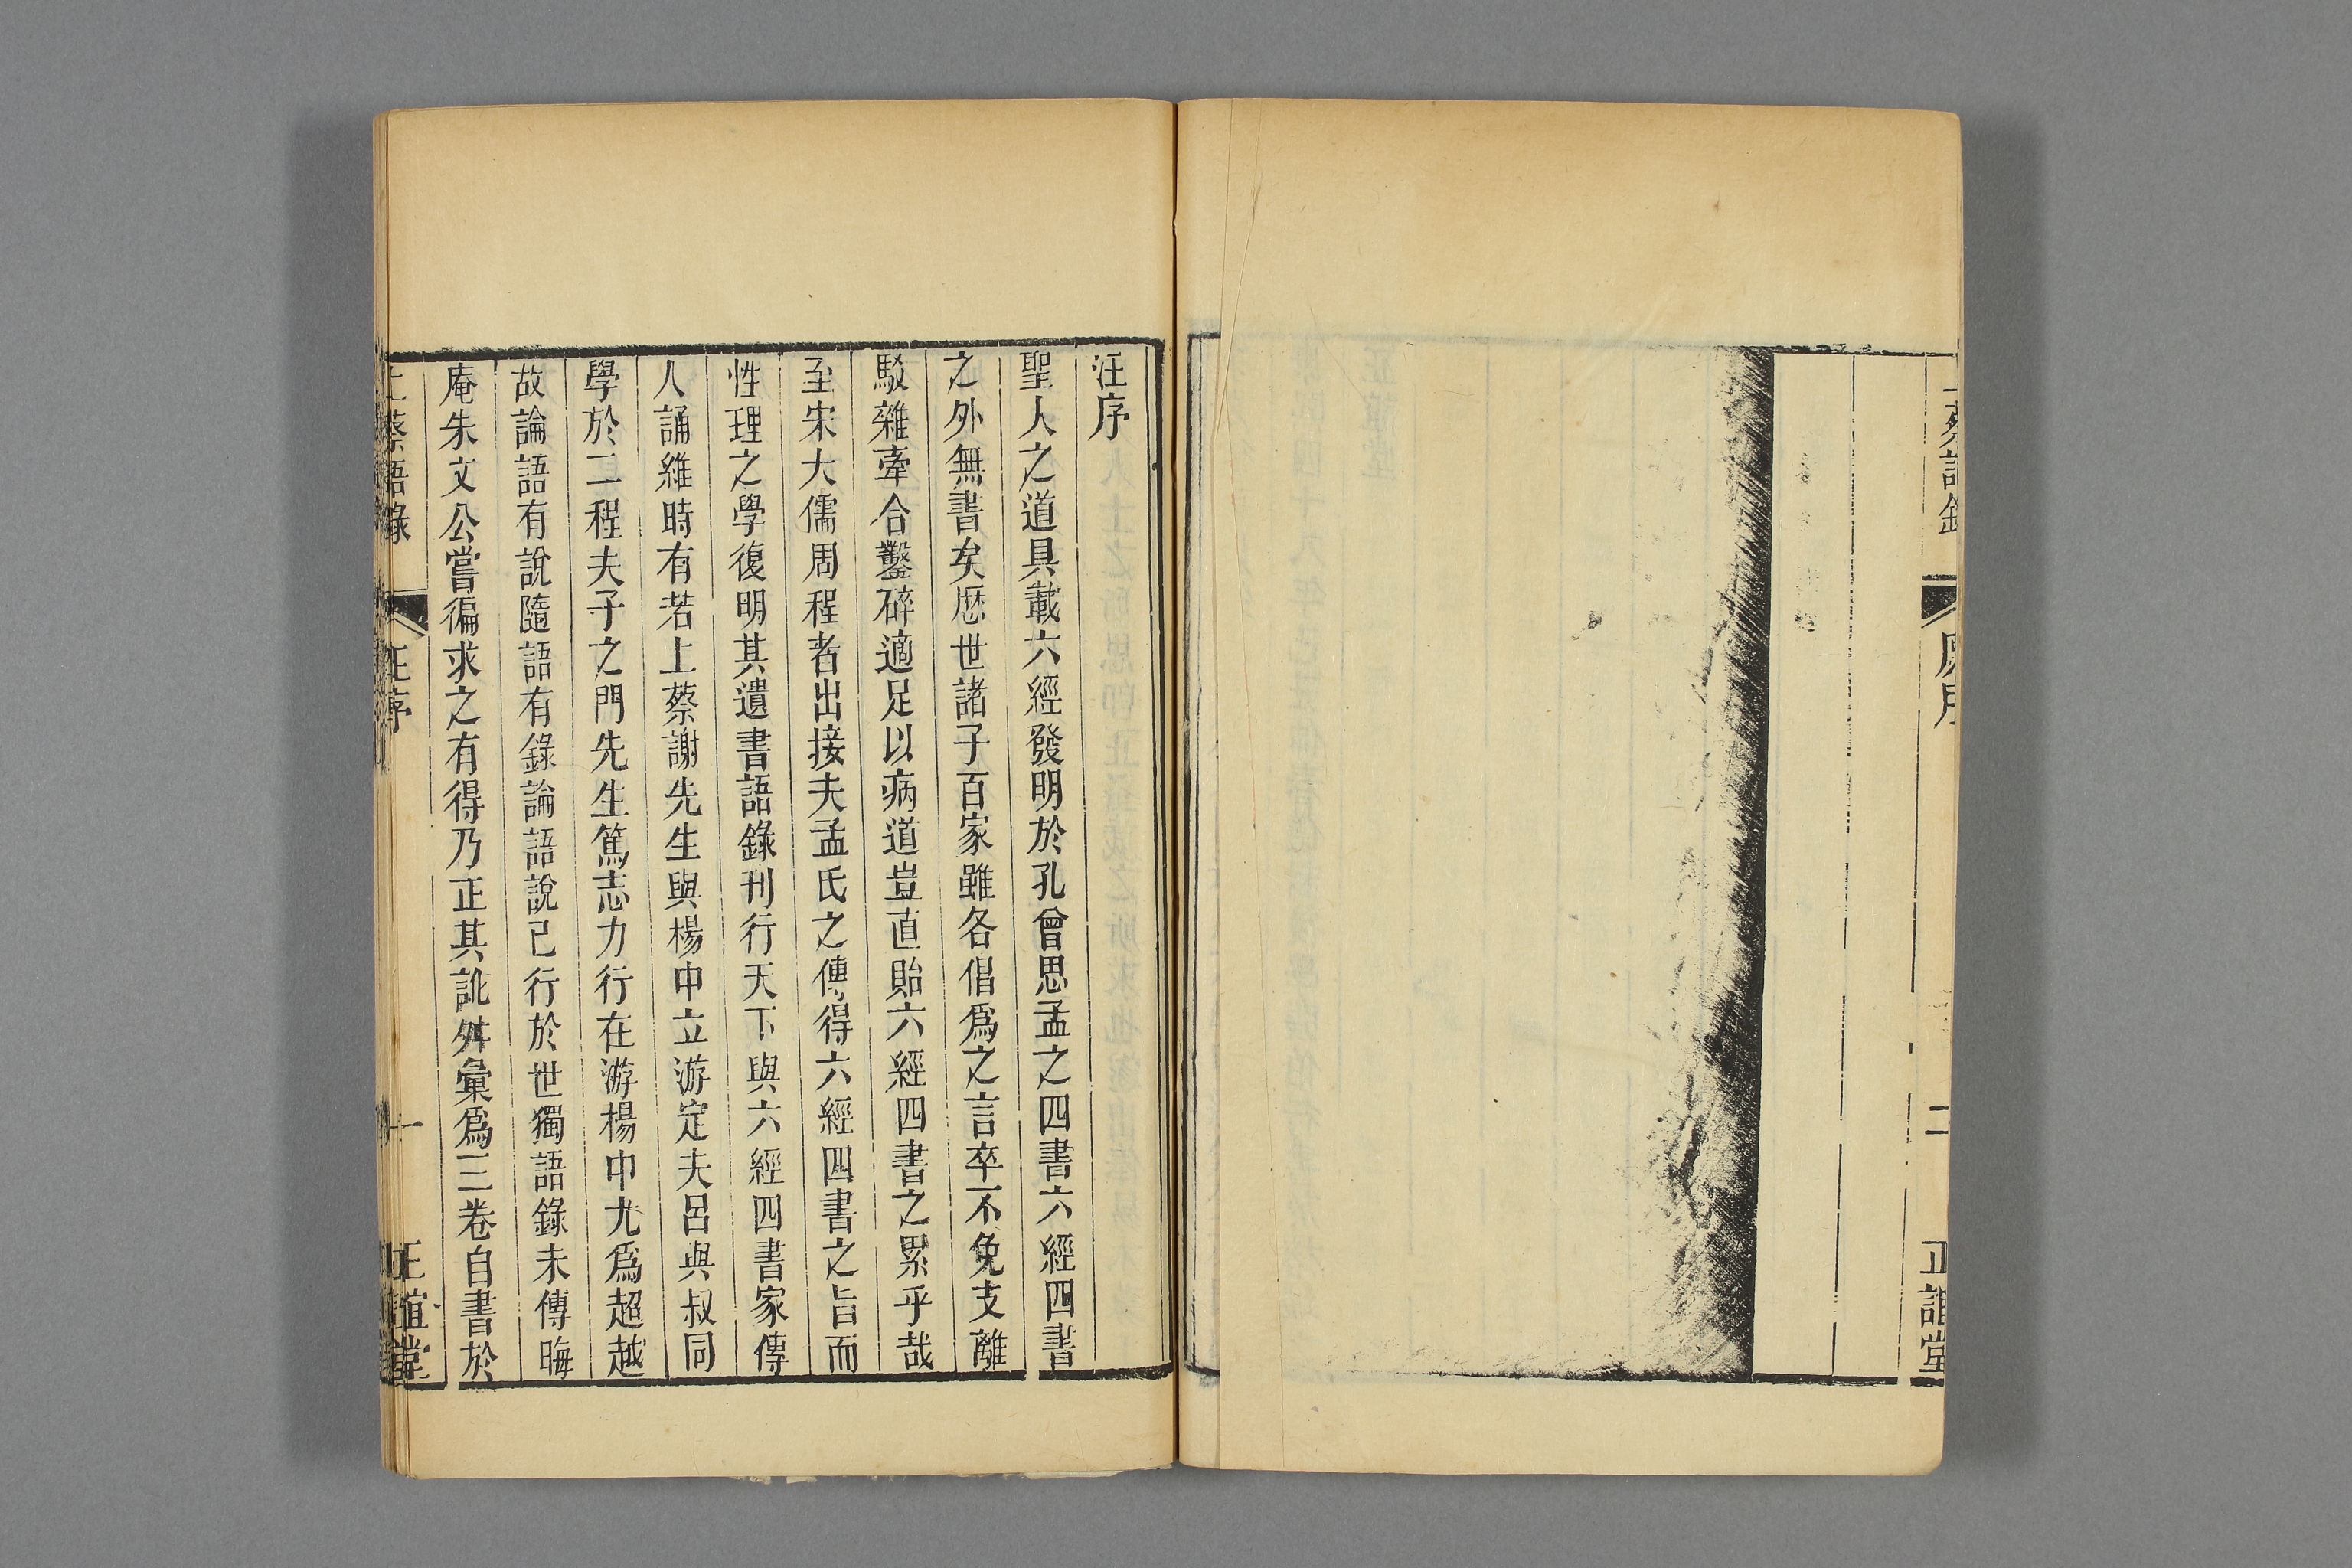 蔡語錄
原序
二
正誼堂
汪序
聖人之道具載六經發明於孔曾思孟之四書六經四書
之外無書矣厯世諸子百家雖各倡爲之言卒不免支離
駁雜牽合鑿碎適足以病道豈直貽六經四書之累乎哉
至宋大儒周程者出接夫孟氏之傳得六經四書之旨而
性理之學復明其遺書語錄刊行天下與六經四書家傳
人誦維時有若上蔡謝先生與楊中立游定夫呂與叔同
學於二程夫子之門先生篤志力行在游楊中尤爲超越
故論語有說隨語有錄論語說已行於世獨語錄未傳晦
庵朱文公嘗徧求之有得乃正其訛舛彙爲三卷自書於
上蔡語錄
汪序
一
正誼堂